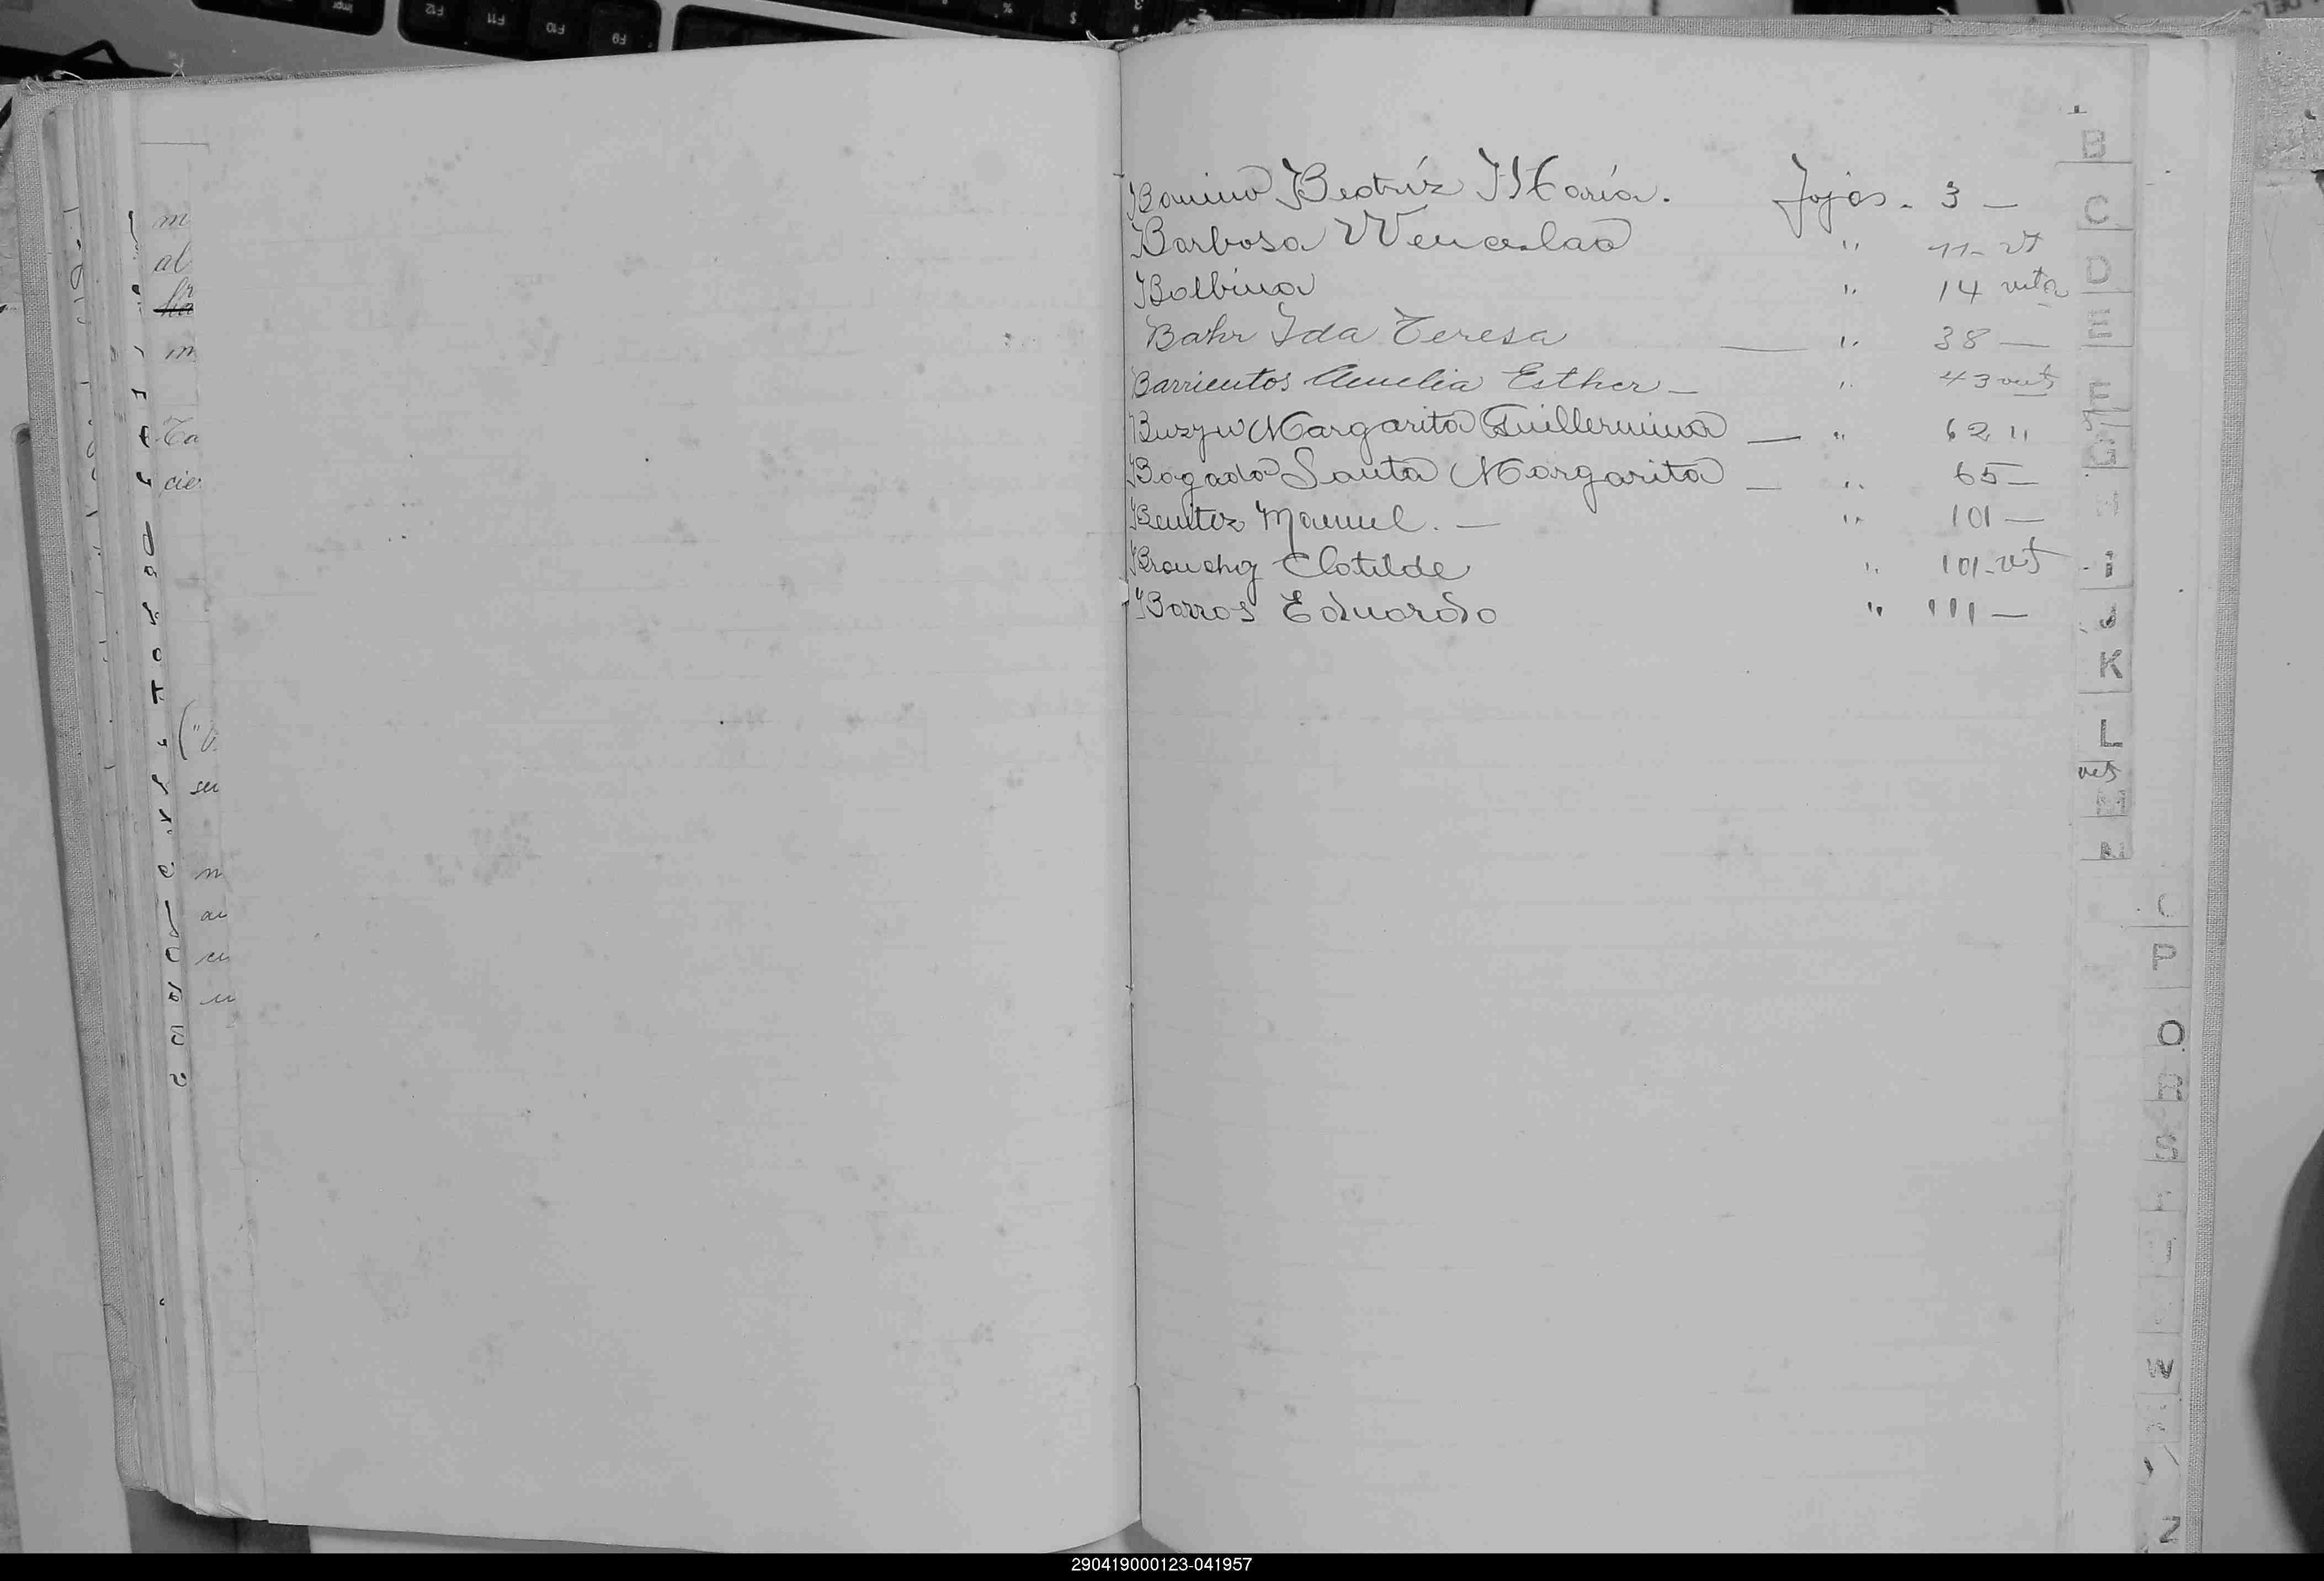 B
Banino Beatríz María. Fojas. 3 —
Barbosa Wenceslao " 11- vt
Balbina " 14 vuelta
Bahr Ida Teresa — " 38 —
Barrientos Amelia Esther — " 43 vta
Margarita Guillermina — " 62 "
Bogado Santa Margarita — " 65 —
Benitez Manuel. — " 101 —
Clotilde " 101- vt
Barros Eduardo " 111 —
C
D
E
F
G
i
J
K
L
N
O
P
Q
R
S
W
Z
290419000123-041957